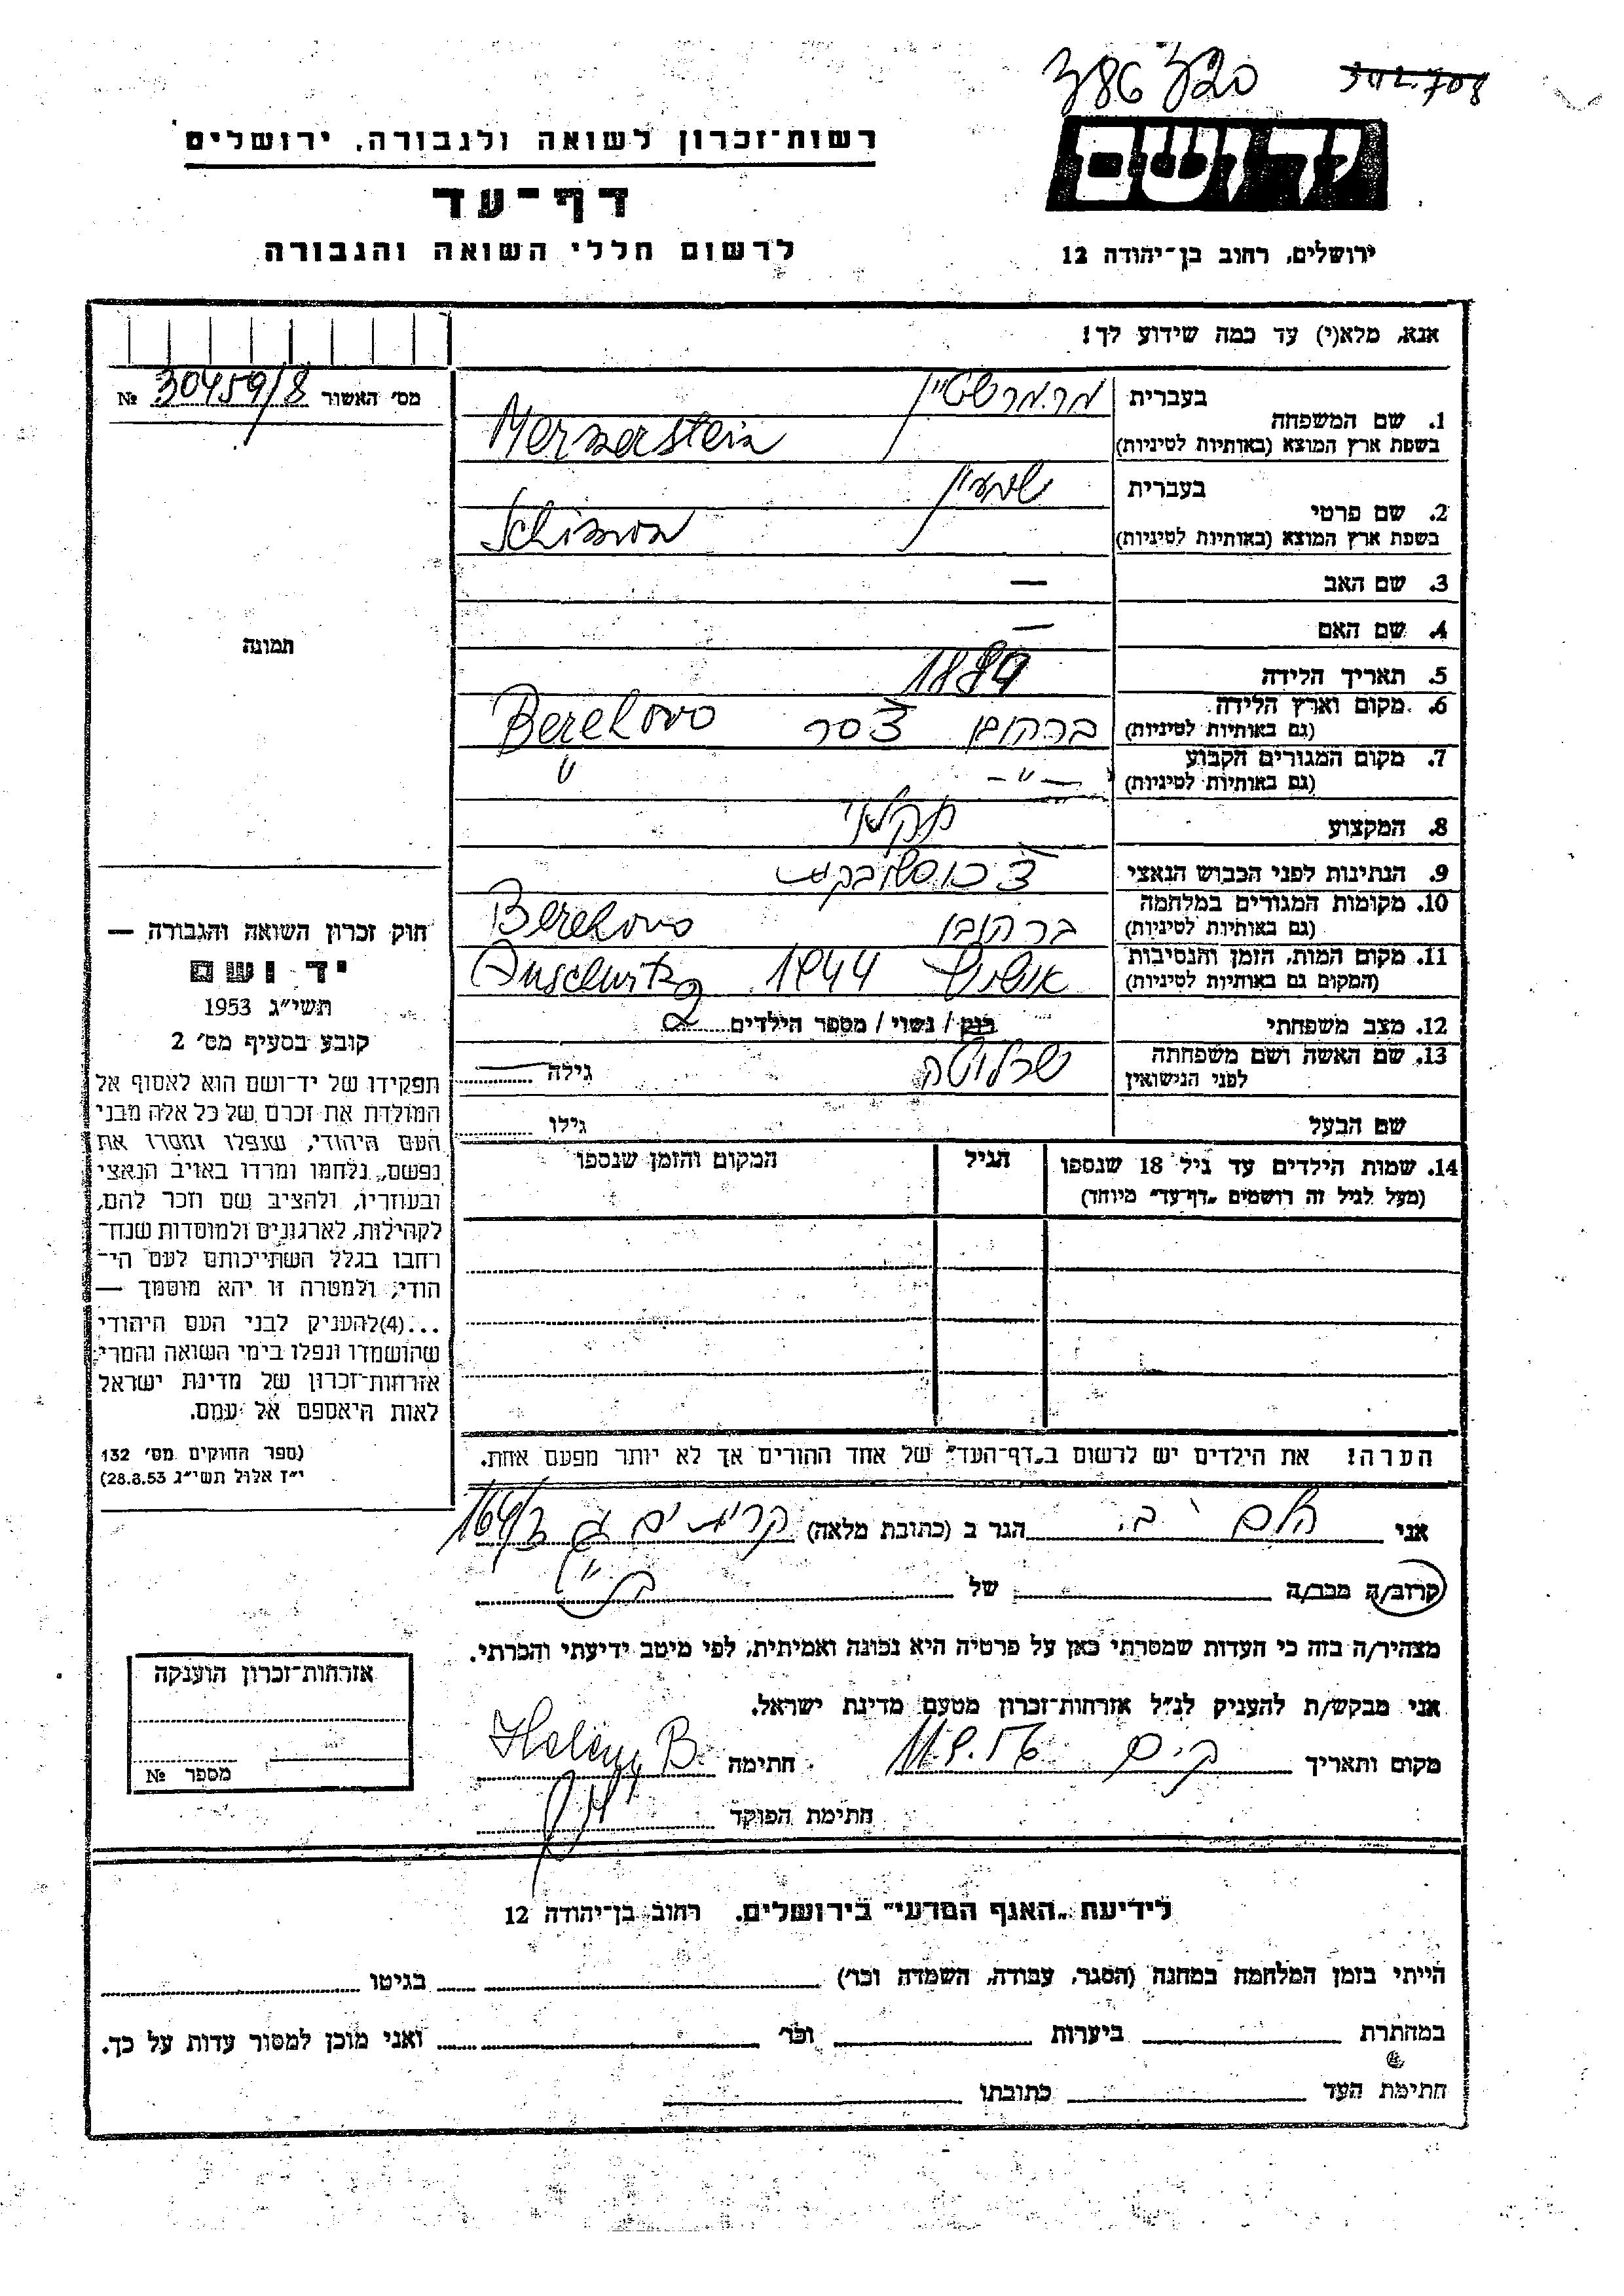 386320 302.708
יד ושם
ירושלים, רחוב בן־יהודה 12
רשות־זכרון לשואה ולגבורה, ירושלים
דף־עד
לרשום חללי השואה והגבורה
אנא, מלא(י) עד כמה שידוע לך!
מס׳ האשור 30459/8 №
1. שם המשפחה
בעברית מרמרשטיין
בשפת ארץ המוצא (באותיות לטיניות) Mermerstein
2. שם פרטי
בעברית שמעון
בשפת ארץ המוצא (באותיות לטיניות) Schimon
3. שם האב —
4. שם האם —
5. תאריך הלידה
6. מקום וארץ הלידה
(גם באותיות לטיניות) ברהובו צ׳סר Berehovo
7. מקום המגורים הקבוע
(גם באותיות לטיניות) —״— ״
8. המקצוע חקלאי
9. הנתינות לפני הכבוש הנאצי
10. מקומות המגורים במלחמה
(גם באותיות לטיניות) ברהובו Berehovo
11. מקום המות, הזמן והנסיבות
(המקום גם באותיות לטיניות) אושויץ 1944 Auschwitz
12. מצב משפחתי רווק / נשוי / מספר הילדים 2
13. שם האשה ושם משפחתה
לפני הנישואין שרלוטה גילה —
שם הבעל גילו
14. שמות הילדים עד גיל 18 שנספו
(מעל לגיל זה רושמים „דף־עד״ מיוחד)
הגיל
המקום והזמן שנספו
הערה! את הילדים יש לרשום ב„דף־העד״ של אחד ההורים אך לא יותר מפעם אחת.
תמונה
חוק זכרון השואה והגבורה —
יד ושם
תשי״ג 1953
קובע בסעיף מס׳ 2
תפקידו של יד־ושם הוא לאסוף אל
המולדת את זכרם של כל אלה מבני
העם היהודי, שנפלו ומסרו את
נפשם, נלחמו ומרדו באויב הנאצי
ובעוזריו, ולהציב שם וזכר להם,
לקהילות, לארגונים ולמוסדות שנח־
רבו בגלל השתייכותם לעם הי־
הודי, ולמטרה זו יהא מוסמך —
...(4) להעניק לבני העם היהודי
שהושמדו ונפלו בימי השואה והמרי
אזרחות־זכרון של מדינת ישראל
לאות היאספם אל עמם.
(ספר החוקים מס׳ 132
י״ז אלול תשי״ג 28.8.53)
אני הגר ב (כתובת מלאה) 164/3
קרוב/ה מכר/ה של
מצהיר/ה בזה כי העדות שמסרתי כאן על פרטיה היא נכונה ואמיתית, לפי מיטב ידיעתי והכרתי.
אני מבקש/ת להעניק לנ״ל אזרחות־זכרון מטעם מדינת ישראל.
מקום ותאריך 11.9.56 חתימה B.
חתימת הפוקד
אזרחות־זכרון הוענקה
מספר №
לידיעת „האגף המדעי״ בירושלים, רחוב בן־יהודה 12
הייתי בזמן המלחמה במחנה (הסגר, עבודה, השמדה וכו׳) בגיטו
במחתרת ביערות וכו׳ ואני מוכן למסור עדות על כך.
חתימת העד כתובתו